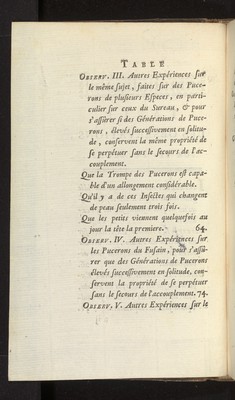 TABLE
OBSERV. III. Autres Expériences sur
le même sujet, faites sur des Puce-
rons de plusieurs Especes, en parti-
culier sur ceux du Sureau, & pour
s'assûrer si des Générations de Puce-
rons, élevés successivement en solitu-
de, conservent la même propriété de
se perpétuer sans le secours de l'ac-
couplement.
Que la Trompe des Pucerons est capa-
ble d'un allongement considérable.
Qu'il y a de ces Insectes qui changent
de peau seulement trois fois.
Que les petits viennent quelquefois au
jour la tête la premiere. 64.
OBSERV. IV. Autres Expériences sur
les Pucerons du Fusain, pour s'assû-
rer que des Générations de Pucerons
élevés successivement en solitude, con-
servent la propriété de se perpétuer
sans le secours de l'accouplement. 74.
OBSERV. V. Autres Expériences sur le